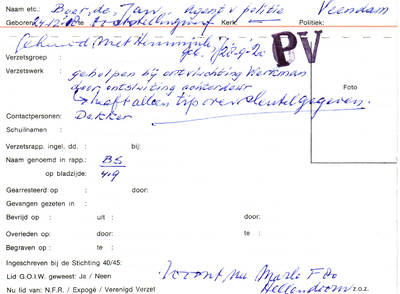 Naam etc.: Boer, de, Jan, agent v politie Veendam
Geboren: 24-12- Kerk: Politiek:
Gehuwd met
PV
Verzetsgroep :
Verzetswerk : geholpen bij ontvluchting Werkman
door ontsluiting achterdeur
heeft alleen tip over sleutel gegeven.
Foto
Contactpersonen: Dekker
Schuilnamen :
Verzetsrapp, ingel. dd. : bij:
Naam genoemd in rapp.: BS
op bladzijde: 49
Gearresteerd op : door:
Gevangen gezeten in :
Bevrijd op : uit : door:
Overleden op: door: te :
Begraven op : te :
Ingeschreven bij de Stichting 40/45:
Lid G.O.I.W. geweest: Ja / Neen
Nu lid van: N.F.R. / Expogé / Verenigd Verzet
Woont nu
Hellendoorn z.o.z.